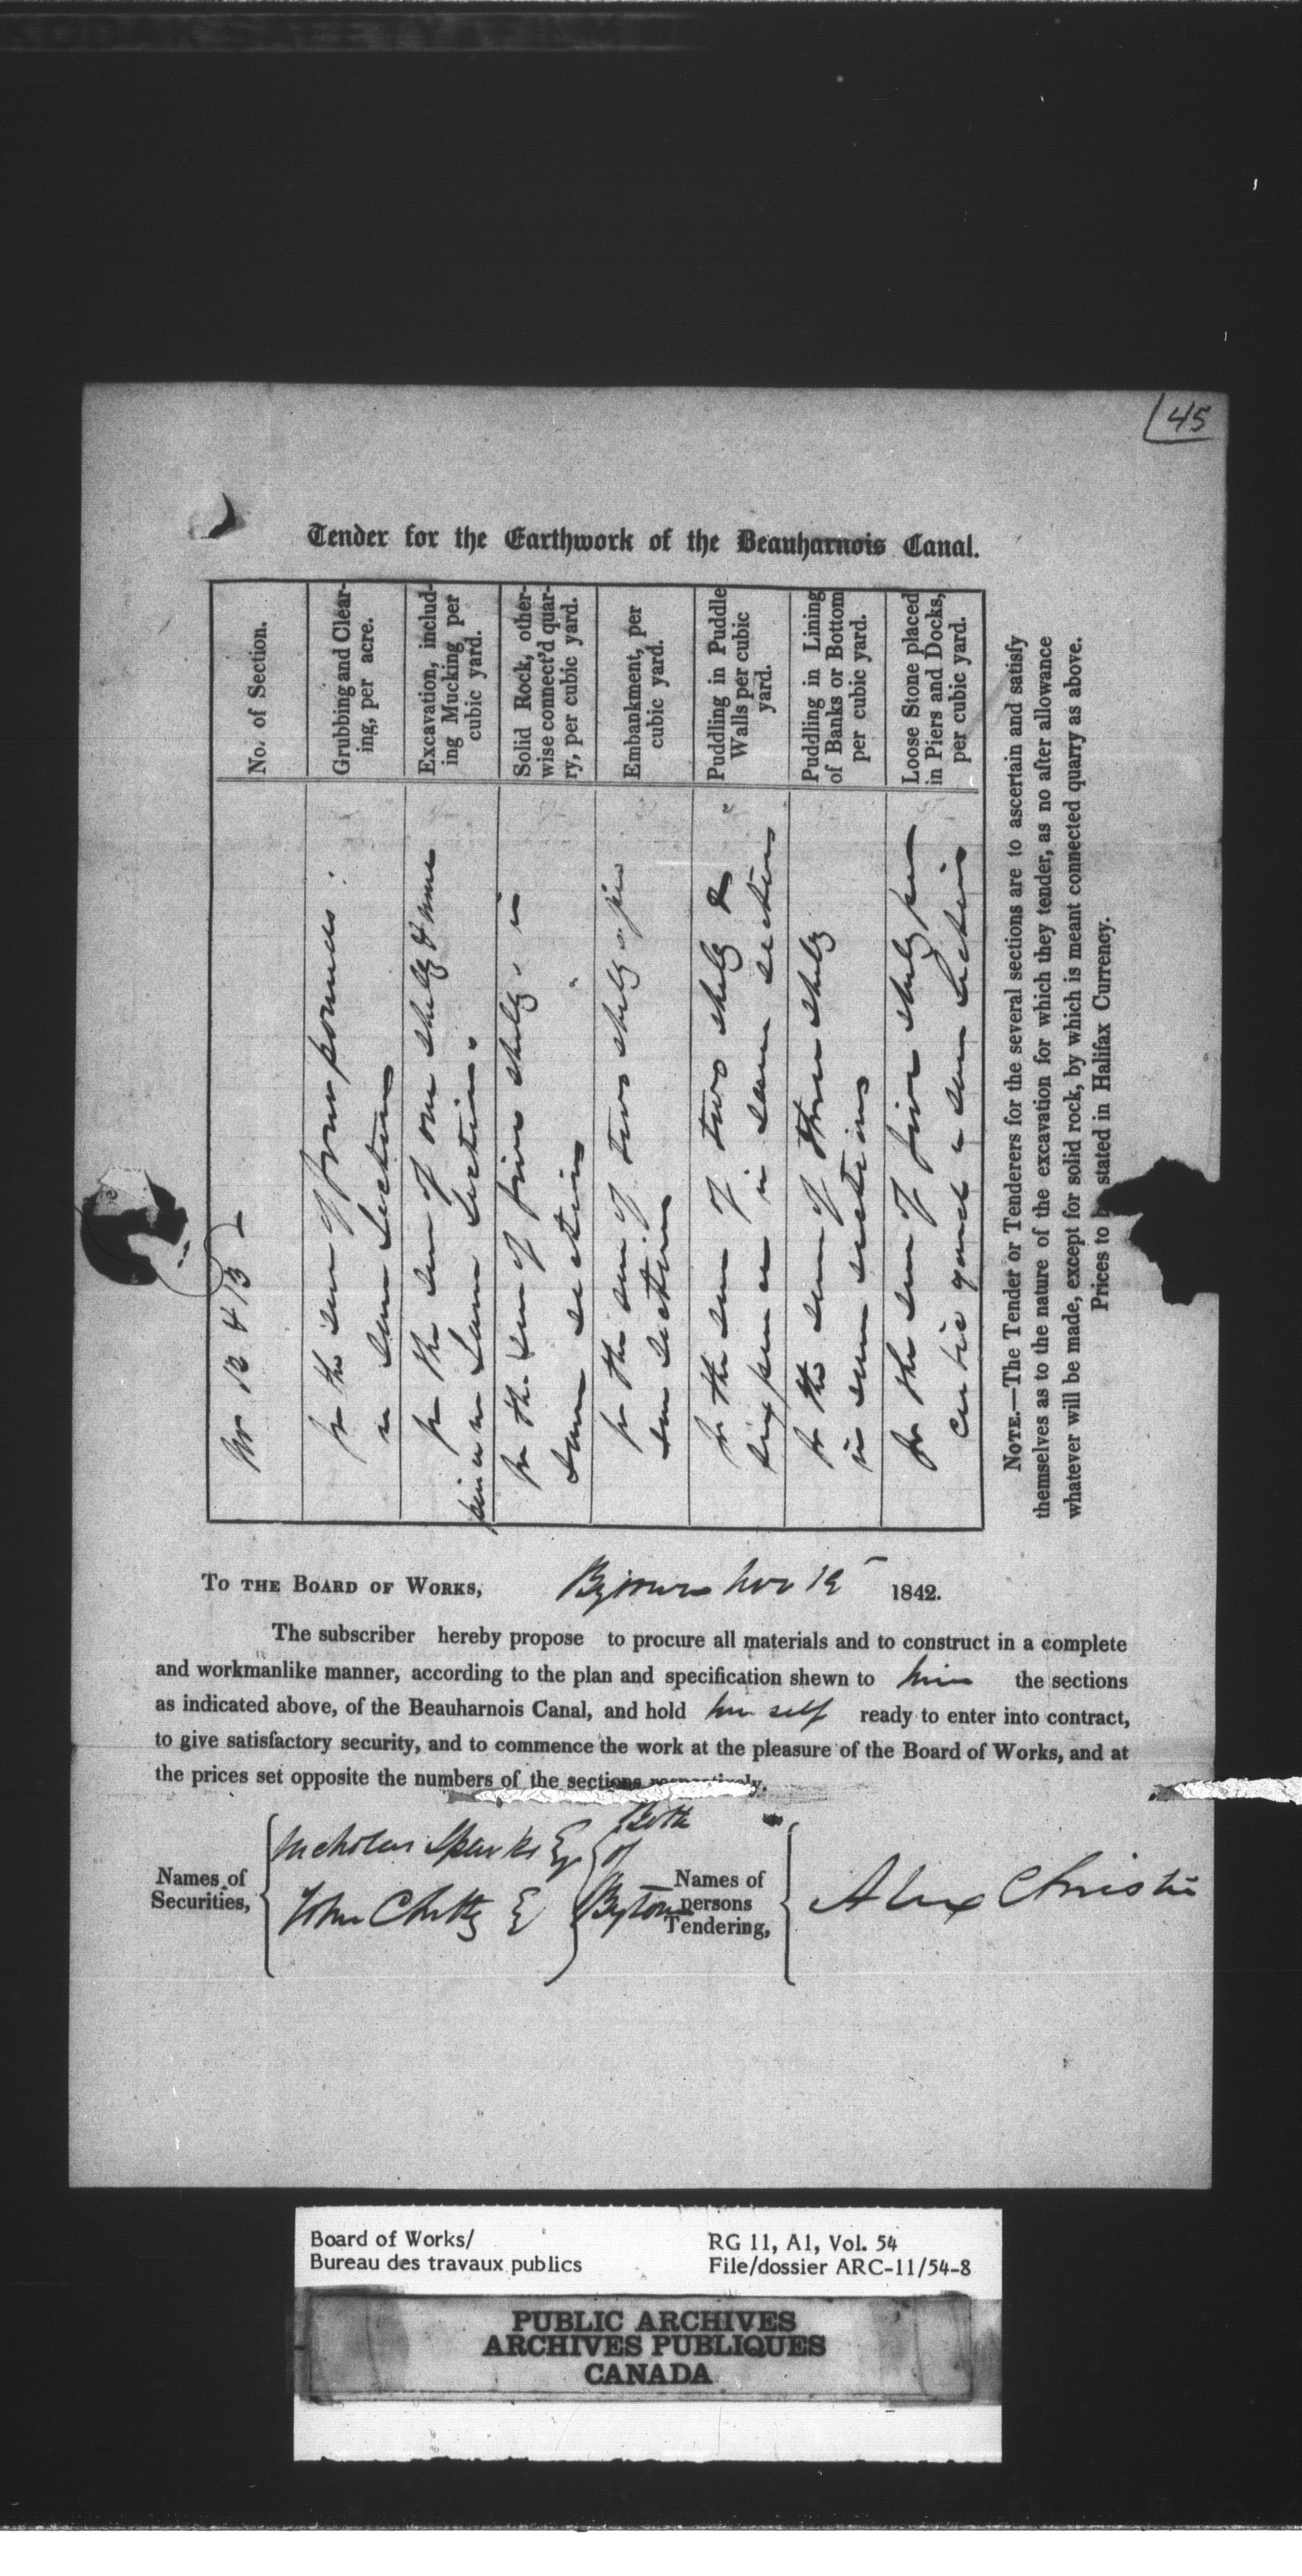 45
Tender for the Earthwork of the Beauharnois Canal.
No. of Section.
Grubbing and Clear-
ing, per acre.
Excavation, includ-
ing Mucking per
cubic yard.
Solid Rock, other-
wise connect'd quar-
ry, per cubic yard.
Embankment, per
cubic yard.
Puddling in Puddle
Walls per cubic
yard.
Puddling in Lining
of Banks or Bottom
per cubic yard.
Loose Stone placed
in Piers and Docks,
per cubic yard.
No 12 & 13
for the sum of four pounds
in sum sections
for the sum of one shillg & nine
pence in sum sections
for the sum of five shillg in
sum sections
for the sum of two shillg
sum sections
for the sum of two shillg &
six pence in sum sections
for the sum of three shillg
in sum sections
for the sum of five shillg per
cubic yard in sum sections
NOTE.—The Tender or Tenderers for the several sections are to ascertain and satisfy
themselves as to the nature of the excavation for which they tender, as no after allowance
whatever will be made, except for solid rock, by which is meant connected quarry as above.
Prices to be stated in Halifax Currency.
TO THE BOARD OF WORKS, Bytown Nov 12 1842.
The subscriber hereby propose to procure all materials and to construct in a complete
and workmanlike manner, according to the plan and specification shewn to him the sections
as indicated above, of the Beauharnois Canal, and hold him self ready to enter into contract,
to give satisfactory security, and to commence the work at the pleasure of the Board of Works, and at
the prices set opposite the numbers of the sections respectively.
Names of
Securities,
Nicholas Sparks Esq
John Chitty E
Both
of
Bytown
Names of
persons
Tendering,
Alex Christie
Board of Works/
Bureau des travaux publics
RG 11, A1, Vol. 54
File/dossier ARC-11/54-8
PUBLIC ARCHIVES
ARCHIVES PUBLIQUES
CANADA